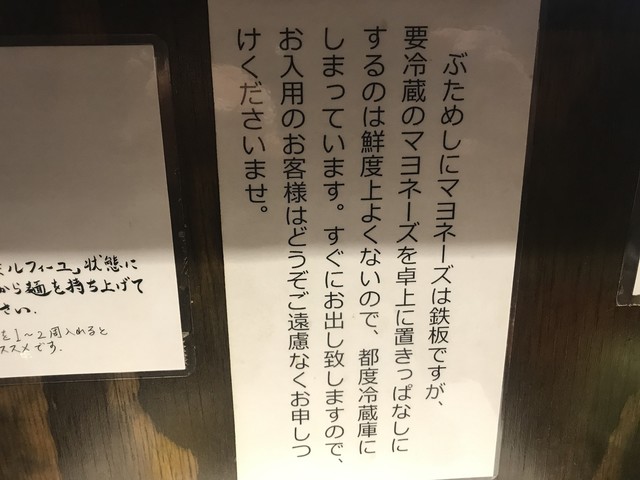 ぶためしにマヨネーズは鉄板ですが、
要冷蔵のマヨネーズを卓上に置きっぱなしに
するのは鮮度上よくないので、都度冷蔵庫に
しまっています。すぐにお出し致しますので、
お入用のお客様はどうぞご遠慮なくお申しつ
けくださいませ。
ミルフィーユ」状態に
から麺を持ち上げて
さい.
を1〜2周入れると
ススメです.